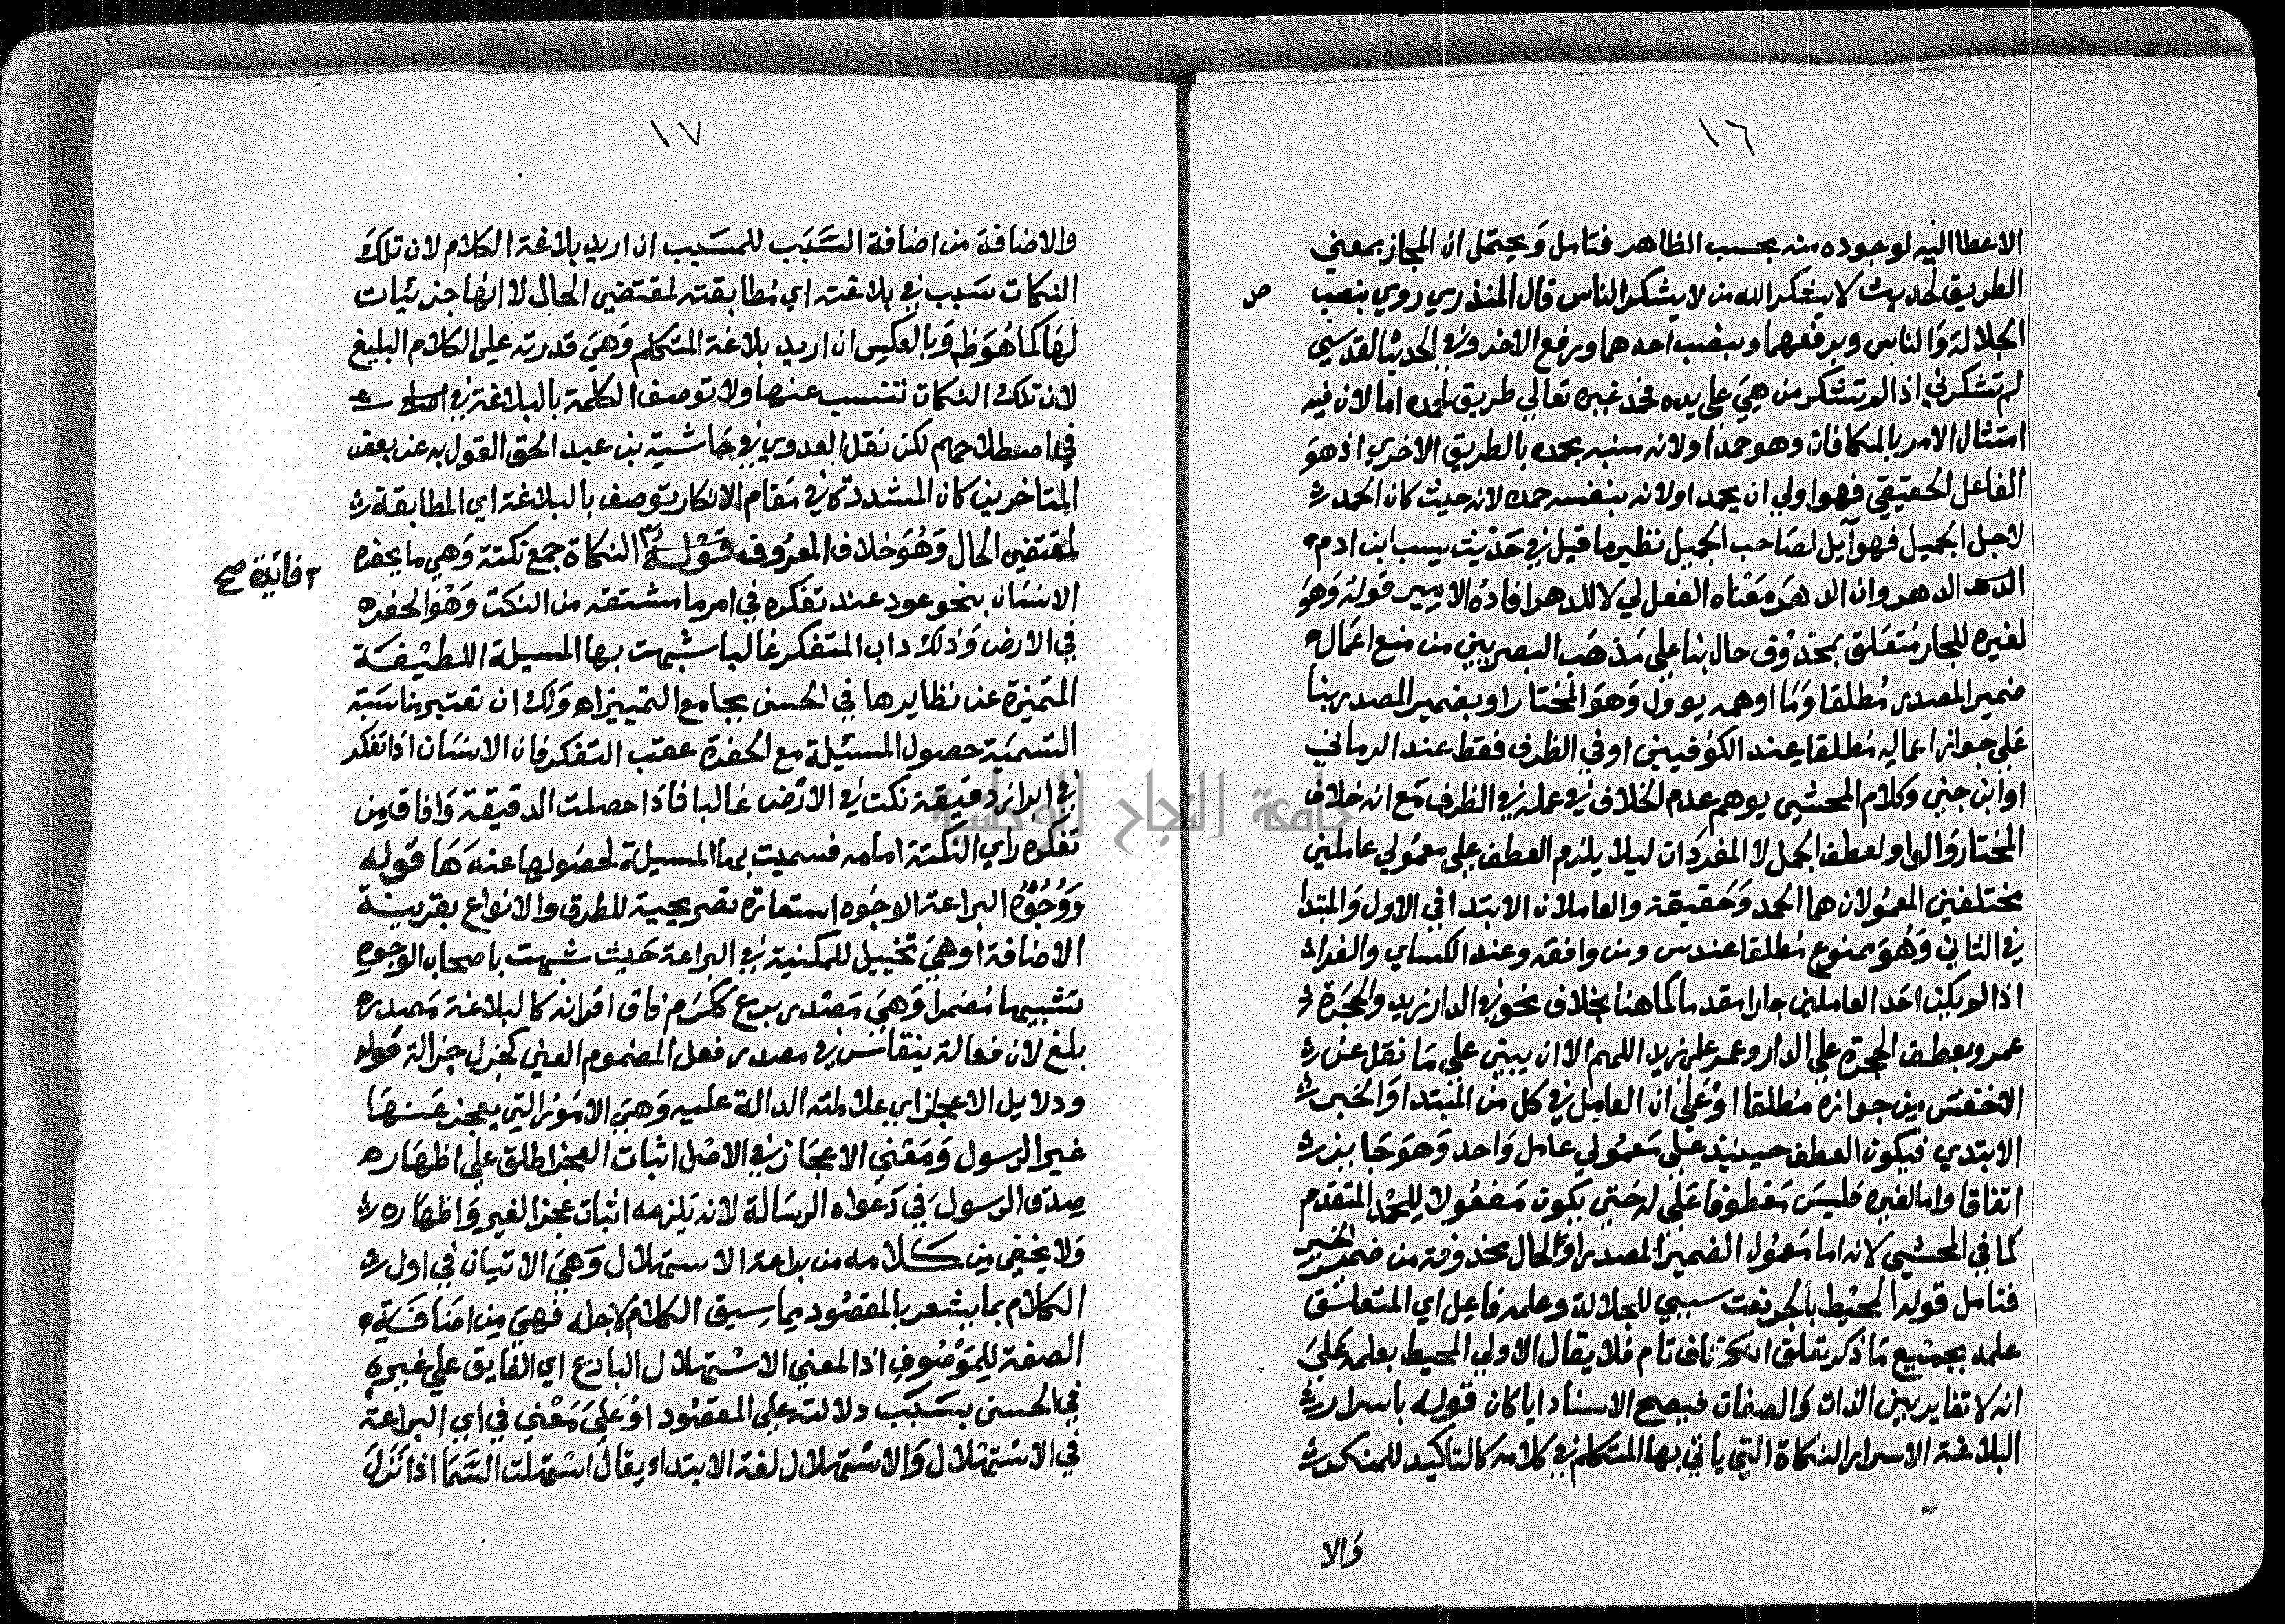 ١٦
الاعطا اليه لوجوده منه بحسب الظاهر فتامل وَيحتمل ان المجاز بمعني
الطريق لحديث لا يشكر الله من لا يشكر الناس قال المنذري روي بنصب
ص
الجلالة وَالناس وبرفعهما وبنصب احدهما ورفع الاخر وفي الحديث القدسي
لم تشكرني اذا لم تشكر من هي علي يده فحمد غيره تعالي طريق لحمده اما لان فيه
امتثال الامر بالمكافات وهو حمد اولانه سنبه بحمده بالطريق الاخري اذ هوَ
الفاعل الحقيقي فهو اولي ان يحمد اولانه بنفسه حمده لانه حيث كان الحمد
لاجل الجميل فهو آيل لصاحب الجميل نظير ما قيل في حَديث يسب ابن ادم
الدهر وان الدهر مَعناه الفعل لي لا للدهر افاده الامير قوله وَهوَ
لغيره للجار مُتعَلق بمحذوف حال بنا علي مَذهَب البصريين من منع اعمال
ضمير المصدر مُطلقا وَمَا اوهمه يوول وَهوَ المختار او بضمير المصدر بنا
عَلي جواز اعماله مُطلقا عند الكوُفيين او في الظرف فقط عند الرماني
اوابن جني وكلام المحشي يوهم عدم الخلاف في عمله في الظرف مَع انه خلاف
المختار وَالواو لعطف الجمل لا المفردات ليلا يلزم العطف علي معمُولي عاملين
مختلفين المعمُولان هما الحمد وَحَقيقة والعاملان الابتدا في الاول وَالمبتدا
في الثاني وَهُوَ ممنوع مُطلقا عند س ومن وافقه وعند الكساي والفرا
اذا لم يكن احَد العاملين جارا مقدما كما هنا بخلاف نحو في الدار زيد والحجَرة
عمرو بعطف الحجرة علي الدار وعمر علي زيد اللهم الا ان يبني علي مَا نقل عن
الاخفش من جوازه مُطلقا اوْعَلي ان العامل في كل من المبتدا وَالخبر
الابتدي فيكون العطف حينئذ علي مَعمُولي عامل وَاحد وَهوَ جَايز
اتفاقا واما لغيره فليسَ مَعطوفا عَلي له حَتي يكون مَفعُولا للحَمْد المتقدم
كما في المحشي لانه اما مَعمُول الضمير المصدر اوْ الحال محذوفة من ضمير الخبر
فتامل قوله المحيط بالجر نعت سببي للجلالة وعلمه فاعل اي المتعلق
علمه بجميع مَا ذكر تعلق انكشاف تام فلا يقال الاولي المحيط بعلمه عَليَ
انه لا تغاير بين الذات وَالصفات فيصح الاسناد ايا كان قوله باسرار
البلاغة الاسرار النكاة التي يأتي بها المتكلم في كلامه كالتاكيد للمنكر
وَالا
١٧
والاضافة من اضافة السَّبَب للمسَبب ان اريد بلاغة الكلام لان تلكَ
النكات سَبب في بلاغته اي مُطابقته لمقتضي الحال لا انهَا جزئيات
لهَا كما هُوَ ظ وَبالعكس ان اريد بلاغة المتكلم وَهيَ قدرته علي الكلام البليغ
لان تلك النكات تتسبب عنها ولا توصف الكلمة بالبلاغة في
في اصطلاحهم لكن نقل العدوي في حَاشية بن عبد الحق القول به عن بعض
المتاخرين كان المشددة في مَقام الانكار توصف بالبلاغة اي المطابقة
لمقتضي الحال وَهُوَ خلاف المعرُوف قَوْله النكاة جمع نكتة وَهي ما يحفره
٢ فائدة صح
الانسَان بنحو عود عند تفكره في امر ما مشتقه من النكت وَهوَ الحفره
في الارض وَذلك داب المتفكر غالبا شبهت بها المسيلة اللطيفة
المتميزة عن نظايرها في الحسن بجامع التمييز اه وَلك ان تعتبر مناسَبة
التسميَة حصول المسئيلة مع الحفرة عقب التفكر فان الانسَان اذا تفكر
في ابراز دقيقة نكت في الارض غالبا فاذا حصلت الدقيقة وَافاق من
تفكره راي النكتة امامه فسميت بها المسيلة لحصُولها عندَهَا قوله
وَوُجُوُه البراعة الوجُوه استعارة تصريحية للطرق والانواع بقرينة
الاضافة اوهي تخييل للمكنية في البراعة حَيث شبهت باصحاب الوجوه
تشبيها مُضمرا وَهيَ مَصْدر برع ككرَم فاق اقرانه كالبلاغة مَصدر
بلغ لان فعالة ينقاس في مصدر فعل المضموم العين كجزل جزالة قوله
ودلايل الاعجاز اي علاماته الدالة عليه وَهيَ الامُوْر التي يعجز عَنهَا
غير الرسول وَمَعْني الاعجَاز في الاصْل اثبات العجز اطلق علي اظهَاره
صِدْق الرسول في دَعواه الرسَالة لانه يلزمه اثبات عجز الغير وَاظهَاره
وَلا يخفي مِن كلامه من براعة الاستهلال وَهيَ الاتيان في اول
الكلام بما يشعر بالمقصُود مِما سِيق الكلام لاجله فهيَ مِن اضَافة
الصفة للمَوْصُوف اذا لمعني الاسْتهلال البارع اي الفايق علي غيره
في الحسن بسَبَب دلالته علي المقصُود اوْ عَليَ مَعْني في اي البراعة
في الاسْتهْلال وَالاسْتهلال لغة الابتداء يقال اسْتهلت السَّمَا اذا نَزَلَ
جامعة النجاح الوطنية